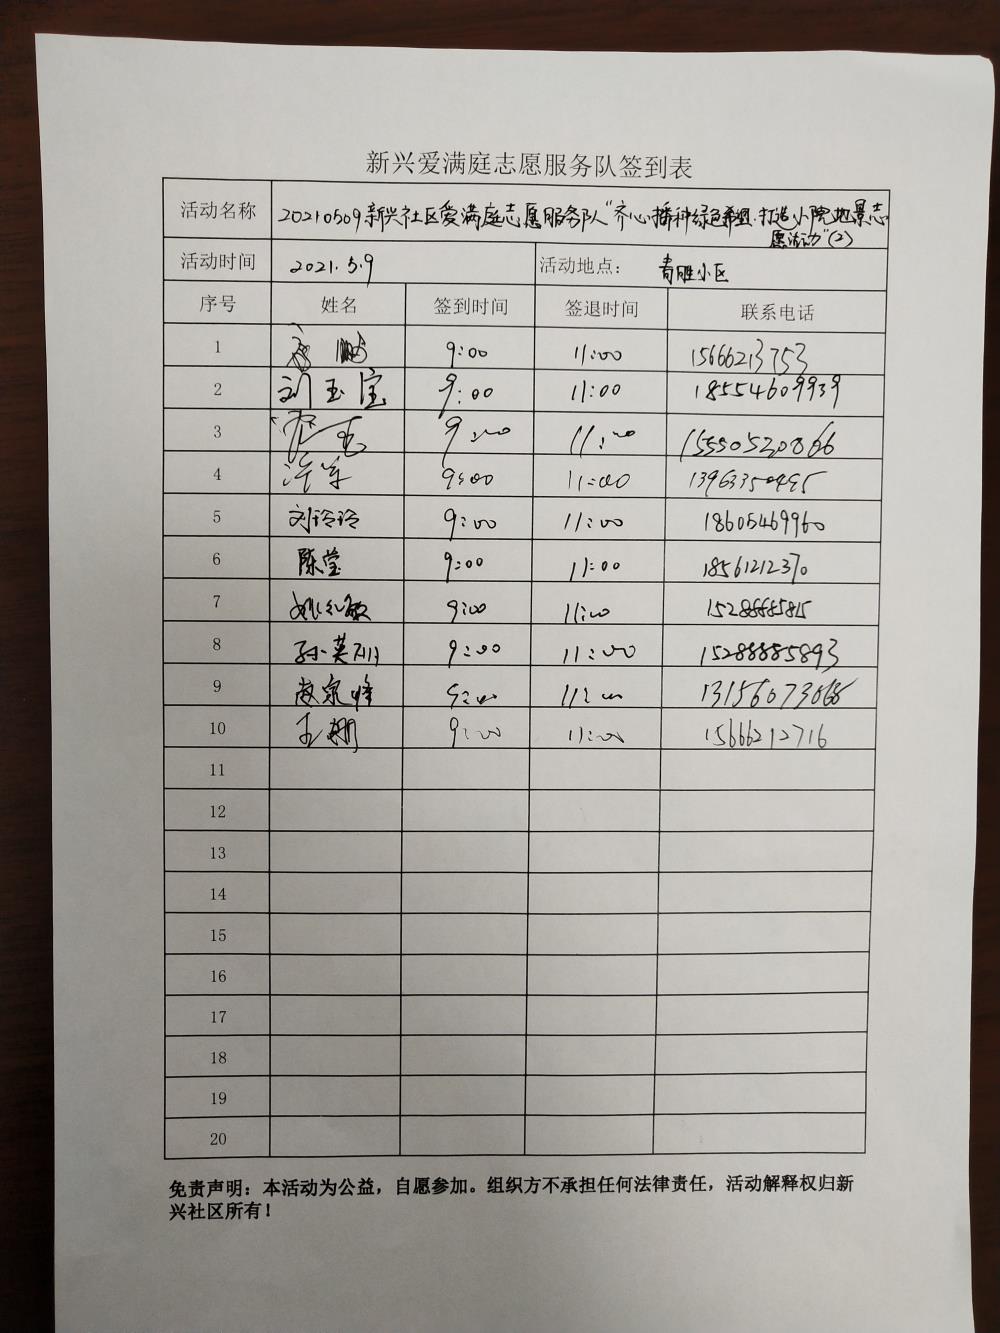 新兴爱满庭志愿服务队签到表
活动名称 20210509新兴社区爱满庭志愿服务队“齐心播种绿色希望.打造小院地景志
愿活动”(2)
活动时间 2021.5.9 活动地点： 青胜小区
序号 姓名 签到时间 签退时间 联系电话
1 9:00 11:00 15666213753
2 刘玉宝 9:00 11:00 18554609939
3 9:00 11:00 15550520866
4 9:00 11:00 13963350495
5 刘玲玲 9:00 11:00 18605469960
6 陈莹 9:00 11:00 18561212370
7 姚红敏 9:00 11:00 15288885815
8 孙英川 9:00 11:00 15288885893
9 赵泉峰 9:00 11:00 13156073068
10 王棚 9:00 11:00 15666212716
11
12
13
14
15
16
17
18
19
20
免责声明：本活动为公益，自愿参加。组织方不承担任何法律责任，活动解释权归新
兴社区所有！